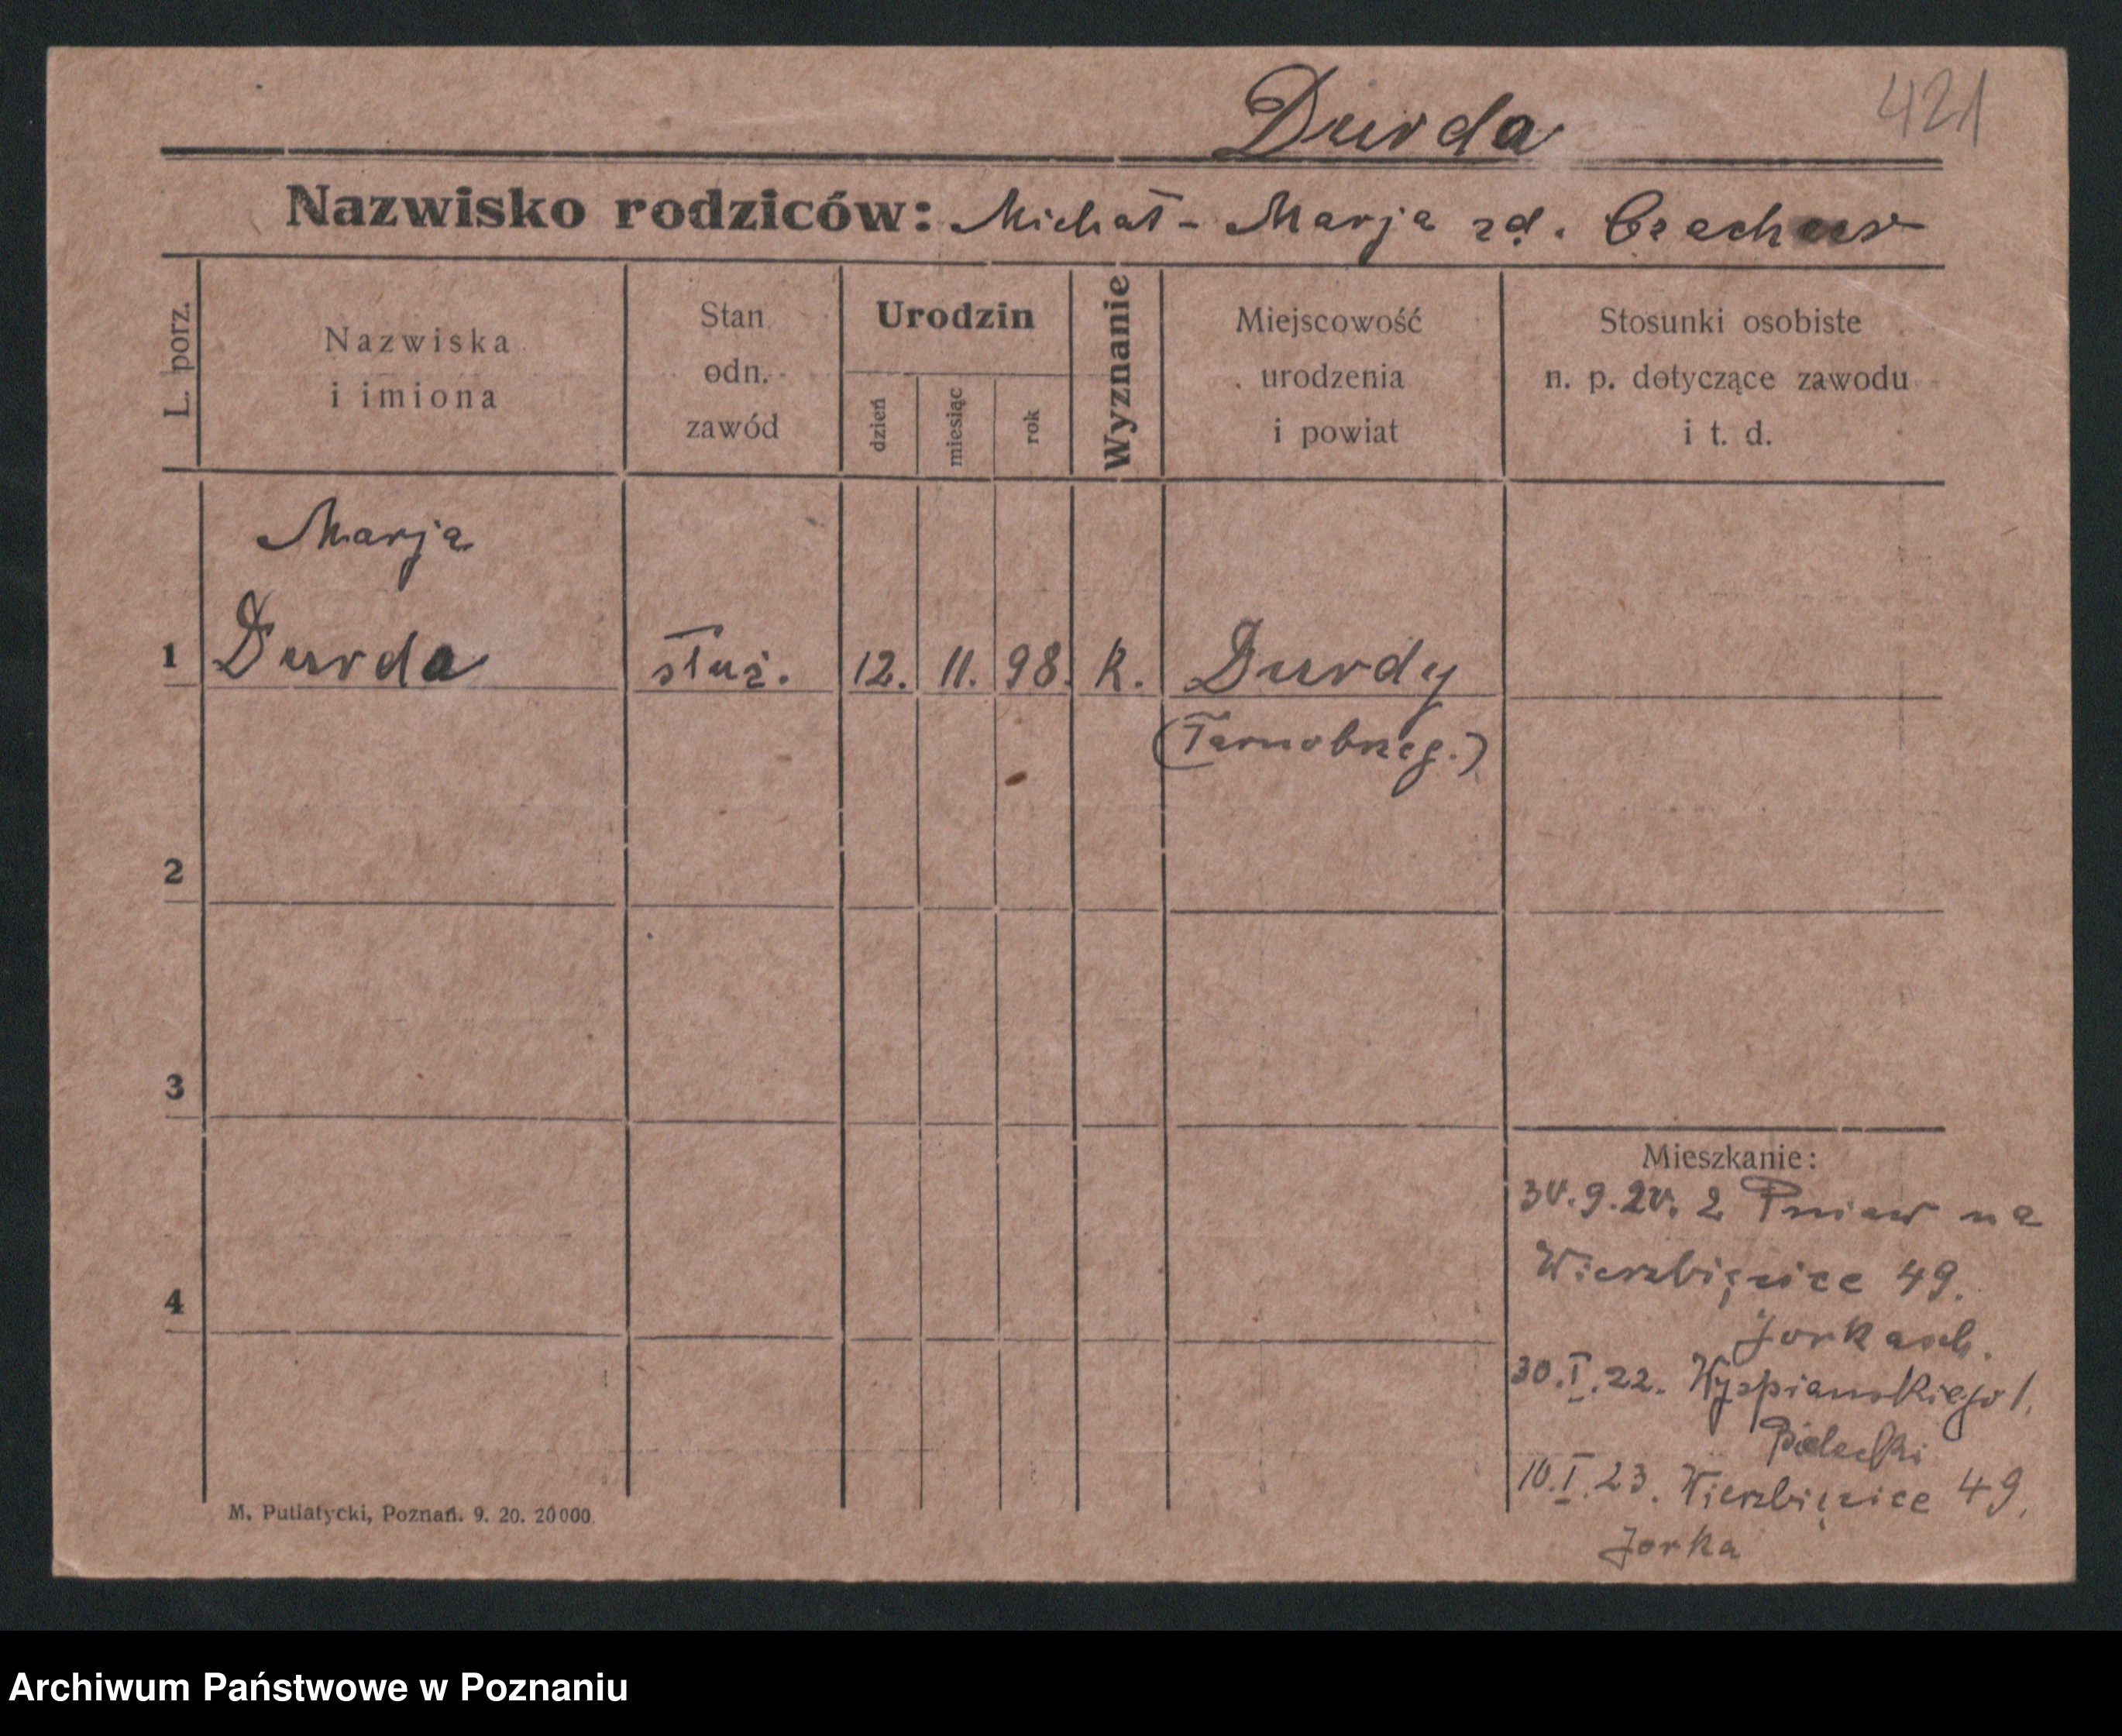 421
Durda
Nazwisko rodziców: Michał - Marja zd. Czechow
L. porz.
Nazwiska
i imiona
Stan
odn.
zawód
Urodzin
dzień
miesiąc
rok
Wyznanie
Miejscowość
urodzenia
i powiat
Stosunki osobiste
n. p. dotyczące zawodu
i t. d.
Marja
1 Durda służ. 12. 11. 98. k. Durdy
(Tarnobrzeg.)
2
3
4
Mieszkanie:
30.9.20. z Pniew na
Wierzbięcice 49.
30.I.22. Wyspianskiego 1.
10.I.23. Wierzbięcice 49.
Jorka
M. Putiatycki, Poznań. 9. 20. 20000.
Archiwum Państwowe w Poznaniu